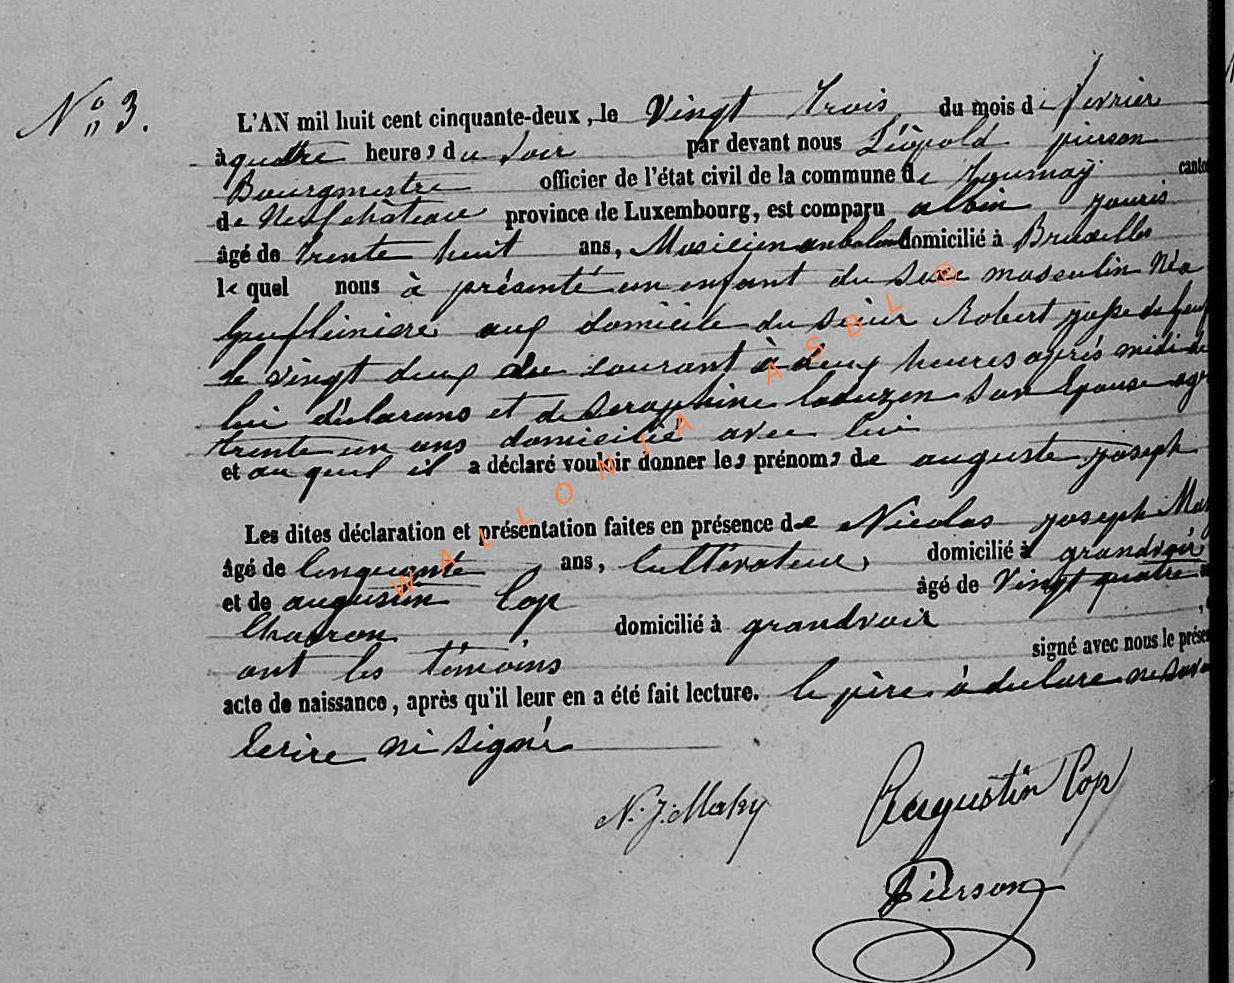 N° 3.
L'AN mil huit cent cinquante-deux, le Vingt trois du mois de fevrier
à quattre heures du Soir par devant nous Léopold pierson
Bourgmestre officier de l'état civil de la commune de tournay canto
de Neufchâteau province de Luxembourg, est comparu albin jouris
âgé de trente huit ans, Musicien anbulant domicilié à Bruxelles
le quel nous à présenté un enfant du Sexe masculin Né a
aux domicile du Sieur Robert
le vingt deux du courant à deux heures après midi de
lui déclarans et de Seraphine son Epouse agé
trente un ans domicilié avec lui
et au quel il a déclaré vouloir donner les prénoms de auguste joseph
Les dites déclaration et présentation faites en présence de Nicolas joseph Mak
âgé de Cinquante ans, Cultivateur, domicilié à grandvoir
et de augustin Cop âgé de Vingt quatre an
Charron domicilié à grandvoir
ont les témoins signé avec nous le présen
acte de naissance, après qu'il leur en a été fait lecture. le père à declare ne Savo
Ecrire ni Signér
N. J. Maky
Augustin Cop
Pierson
WALLONIA ASBL ©